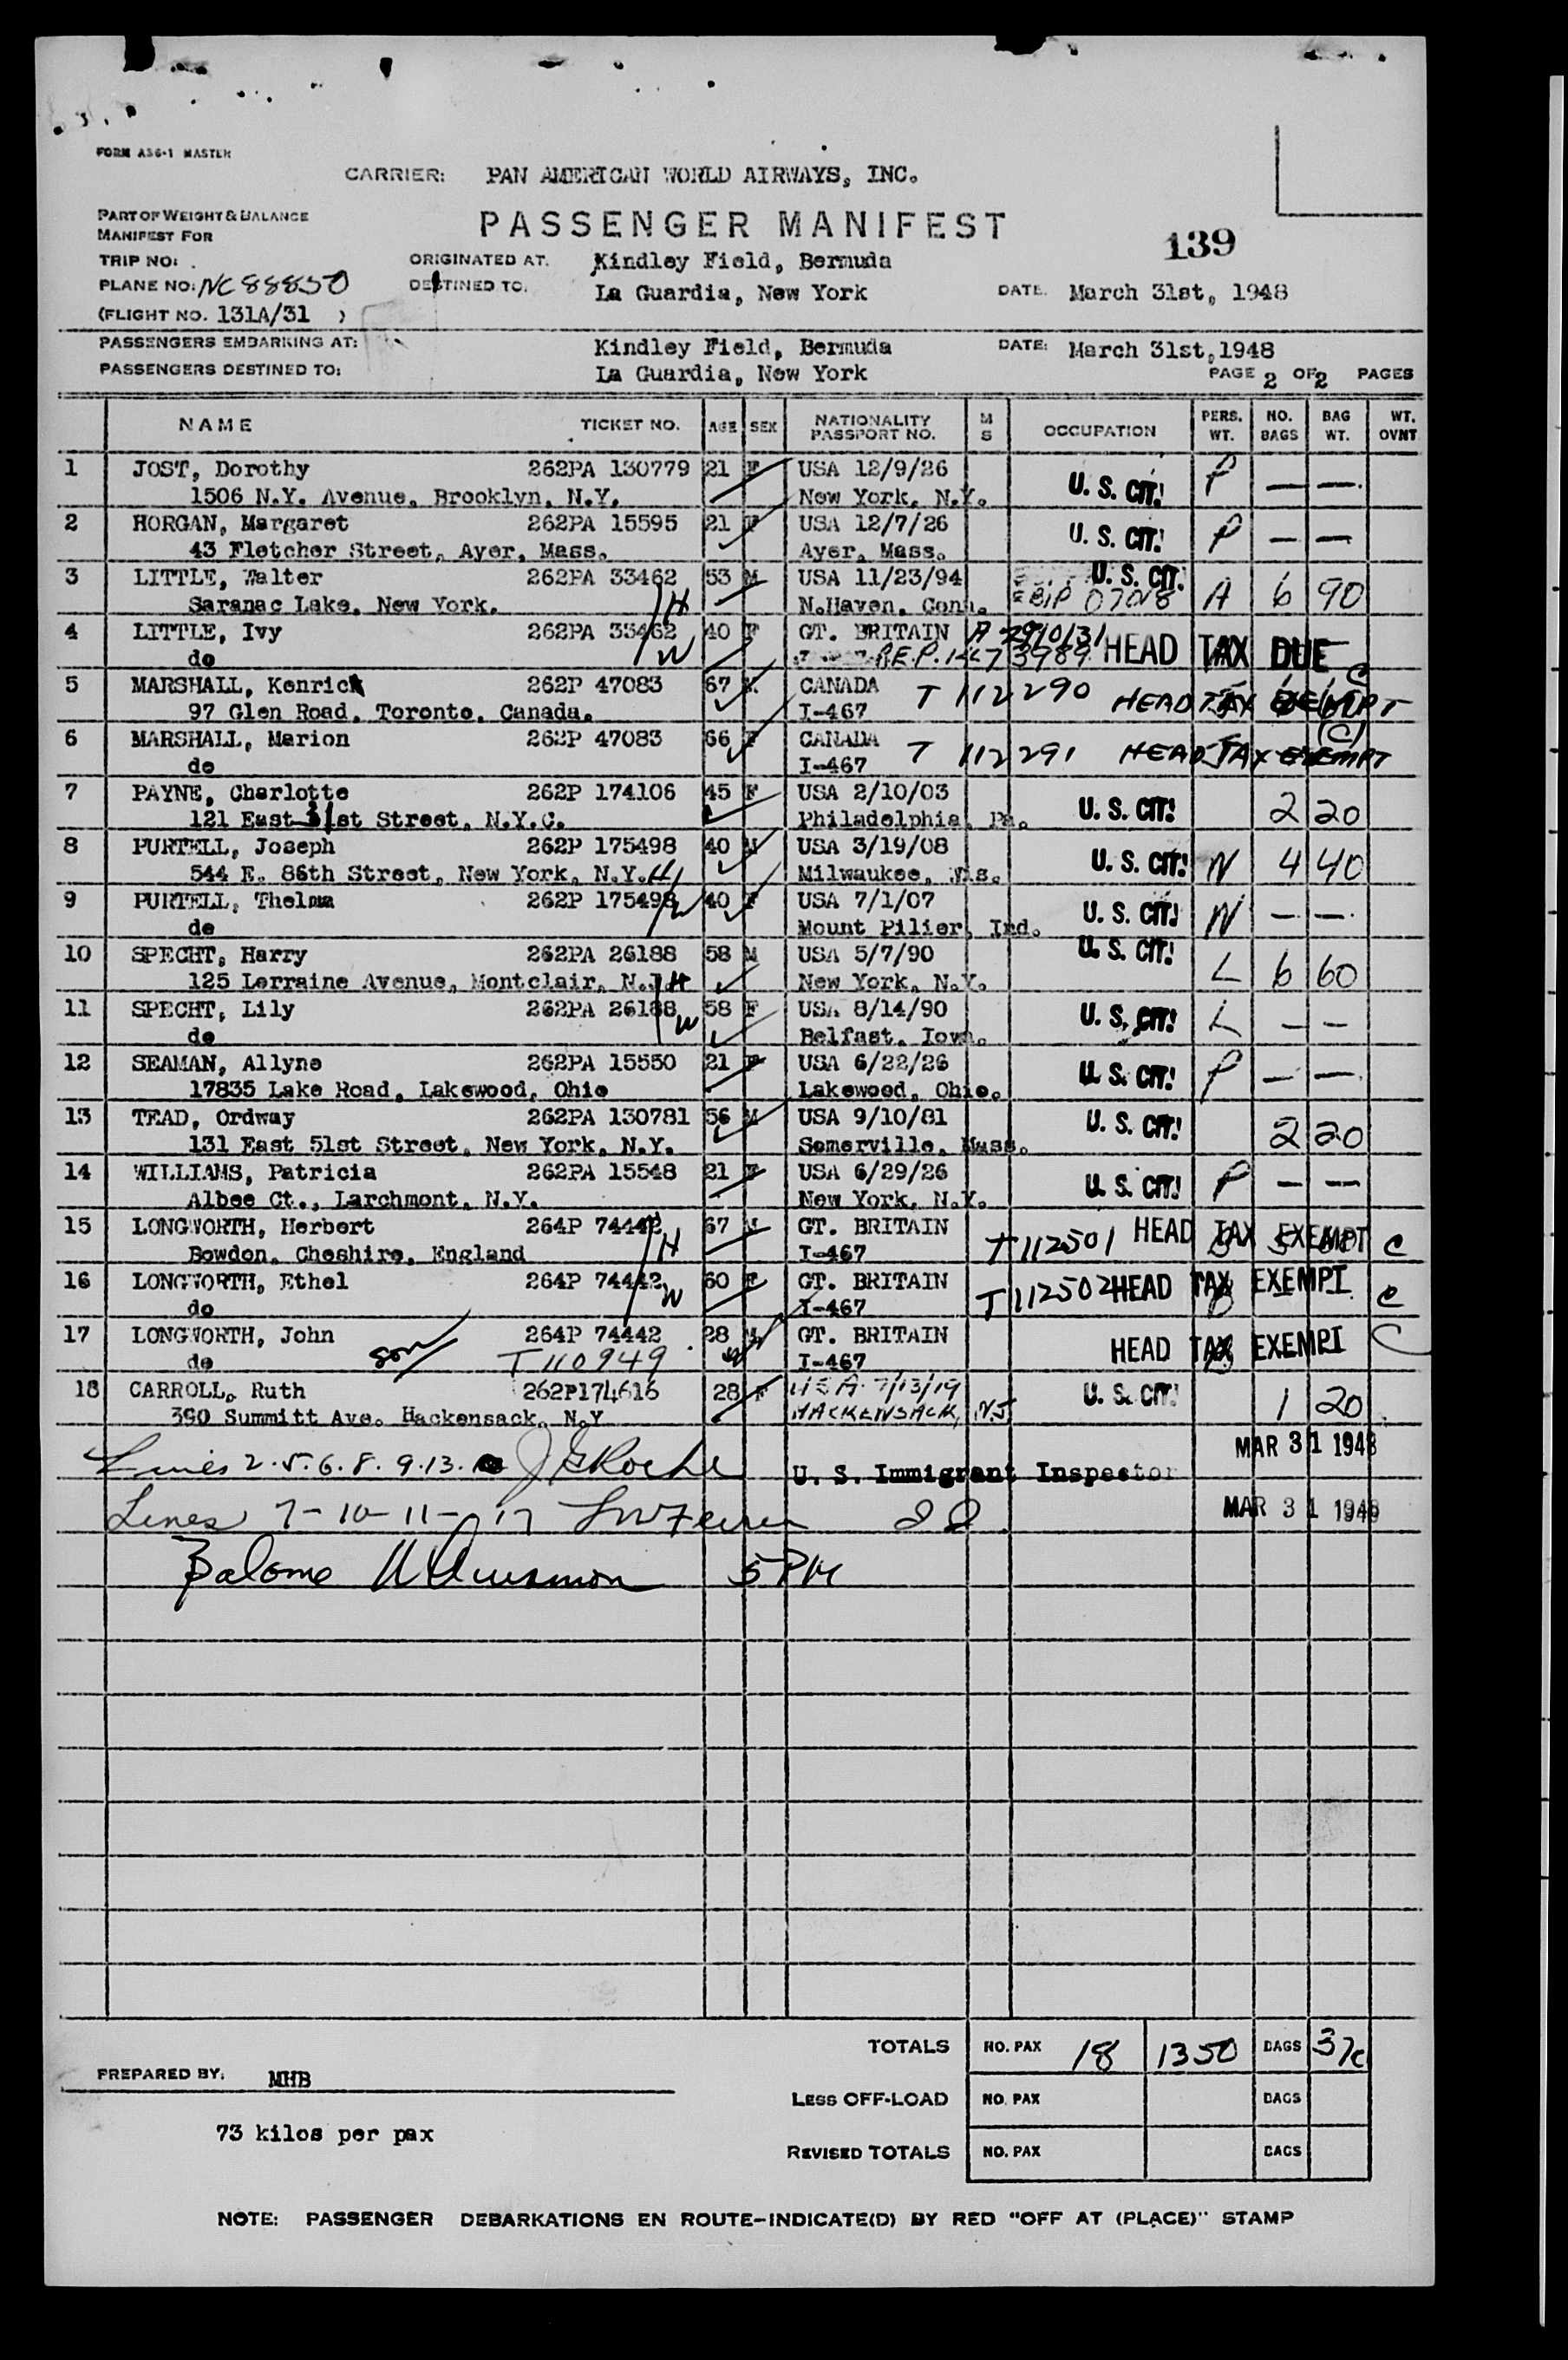 FORM A36-1 MASTER
CARRIER: PAN AMERICAN WORLD AIRWAYS, INC.
PART OF WEIGHT & BALANCE
MANIFEST FOR
PASSENGER MANIFEST
139
TRIP NO:
ORIGINATED AT. Kindley Field, Bermuda
PLANE NO: NC 88850
DESTINED TO. La Guardia, New York DATE. March 31st, 1948
(FLIGHT NO. 131A/31 )
PASSENGERS EMBARKING AT: Kindley Field, Bermuda DATE: March 31st,1948
PASSENGERS DESTINED TO: La Guardia, New York PAGE 2 OF 2 PAGES
NAME TICKET NO. AGE SEX NATIONALITY PASSPORT NO. M S OCCUPATION PERS. WT. NO. BAGS BAG WT. WT. OVNT
1 JOST, Dorothy 262PA 130779 21 F USA 12/9/26 U. S. CIT! P — —
1506 N.Y. Avenue, Brooklyn, N.Y. New York, N.Y.
2 HORGAN, Margaret 262PA 15595 21 F USA 12/7/26 U. S. CIT! P — —
43 Fletcher Street, Ayer, Mass. Ayer, Mass.
3 LITTLE, Walter 262PA 33462 53 M USA 11/23/94 U. S. CIT. A 6 90
Saranac Lake, New York. H N.Haven, Conn.
4 LITTLE, Ivy 262PA 33462 40 F GT. BRITAIN HEAD TAX DUE
do W
5 MARSHALL, Kenrick 262P 47083 67 M CANADA T 112290 HEAD TAX EXEMPT C
97 Glen Road, Toronto, Canada. I-467
6 MARSHALL, Marion 262P 47083 66 F CANADA T 112291 HEAD TAX EXEMPT (C)
do I-467
7 PAYNE, Charlotte 262P 174106 45 F USA 2/10/03 U. S. CIT! 2 20
121 East 31st Street, N.Y.C. Philadelphia, Pa.
8 PURTELL, Joseph 262P 175498 40 M USA 3/19/08 U. S. CIT! N 4 40
544 E. 86th Street, New York, N.Y. H Milwaukee, Wis.
9 PURTELL, Thelma 262P 175498 W 40 F USA 7/1/07 U. S. CIT! N — —
do Mount Pilier, Ind.
10 SPECHT, Harry 262PA 26188 58 M USA 5/7/90 U. S. CIT! L 6 60
125 Lorraine Avenue, Montclair, N.J. H New York, N.Y.
11 SPECHT, Lily 262PA 26188 W 58 F USA 8/14/90 U. S. CIT! L — —
do Belfast, Iowa.
12 SEAMAN, Allyne 262PA 15550 21 F USA 6/22/26 U. S. CIT! P — —
17835 Lake Road, Lakewood, Ohio Lakewood, Ohio.
13 TEAD, Ordway 262PA 130781 56 M USA 9/10/81 U. S. CIT! 2 20
131 East 51st Street, New York, N.Y. Somerville, Mass.
14 WILLIAMS, Patricia 262PA 15548 21 F USA 6/29/26 U. S. CIT! P — —
Albee Ct., Larchmont, N.Y. New York, N.Y.
15 LONGWORTH, Herbert 264P 74442 67 M GT. BRITAIN T 112501 HEAD TAX EXEMPT C
Bowdon, Cheshire, England H I-467
16 LONGWORTH, Ethel 264P 74442 60 F GT. BRITAIN T 112502 HEAD TAX EXEMPT C
do W I-467
17 LONGWORTH, John 264P 74442 28 M GT. BRITAIN HEAD TAX EXEMPT C
do son T 110949 I-467
18 CARROLL, Ruth 262P174616 28 F USA 7/13/19 U. S. CIT! 1 20
390 Summitt Ave. Hackensack, N.Y HACKENSACK, NJ
Lines 2.5.6.8.9.13. U. S. Immigrant Inspector MAR 31 1948
Lines 7-10-11-17 MAR 31 1948
5 PM
TOTALS NO. PAX 18 1350 BAGS
PREPARED BY: MHB
LESS OFF-LOAD NO. PAX BAGS
73 kilos per pax
REVISED TOTALS NO. PAX BAGS
NOTE: PASSENGER DEBARKATIONS EN ROUTE-INDICATE(D) BY RED "OFF AT (PLACE)" STAMP